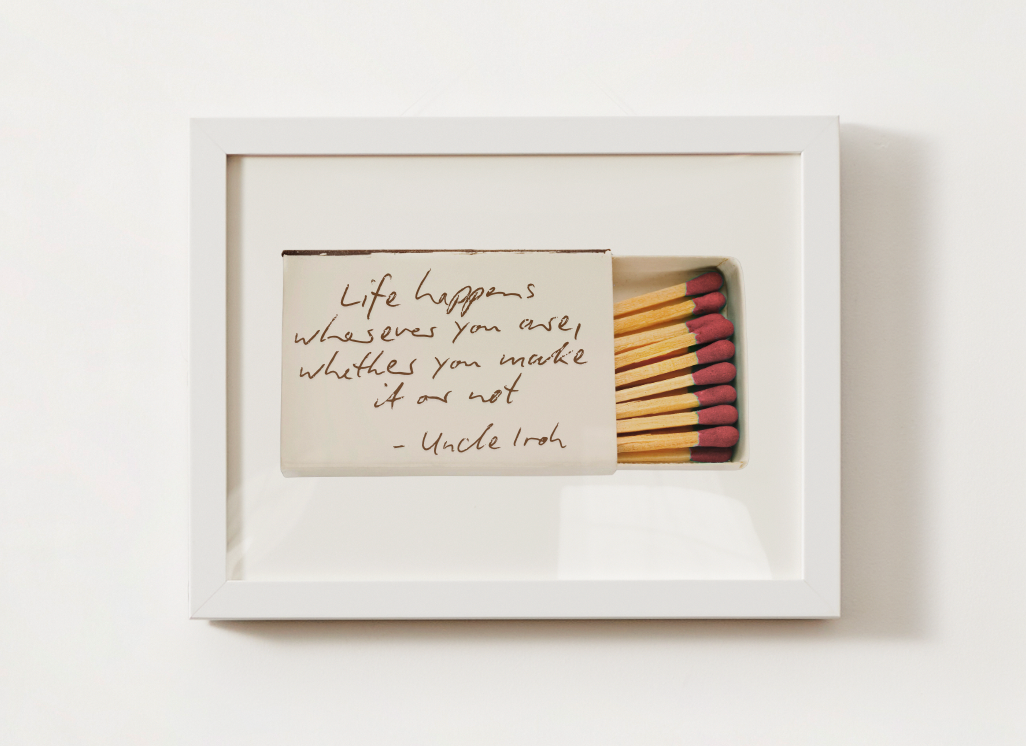 Life happens
wherever you are,
whether you make
it or not
- Uncle Iroh